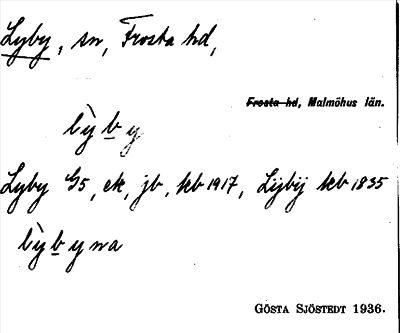 Lyby, sn, Frosta hd,
Frosta hd, Malmöhus län.
lỳby
Lyby G5, ek, jb, kb 1917, Lijbij kb 1835
lỳbyna
GÖSTA SJÖSTEDT 1936.